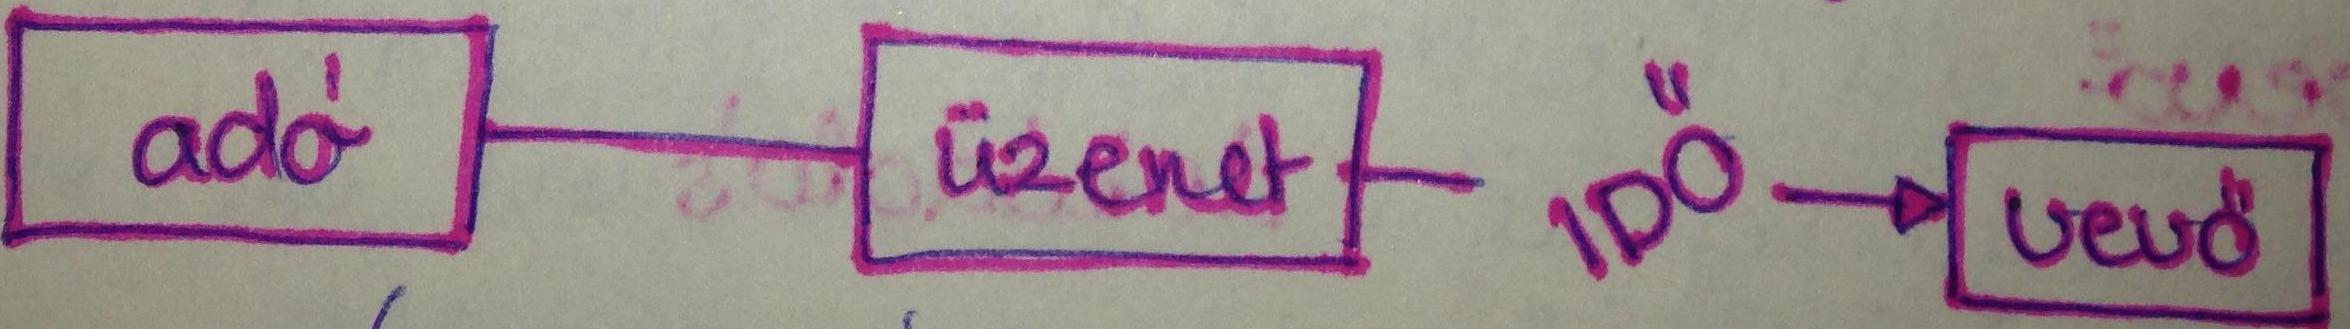 adó üzenet IDŐ vevő